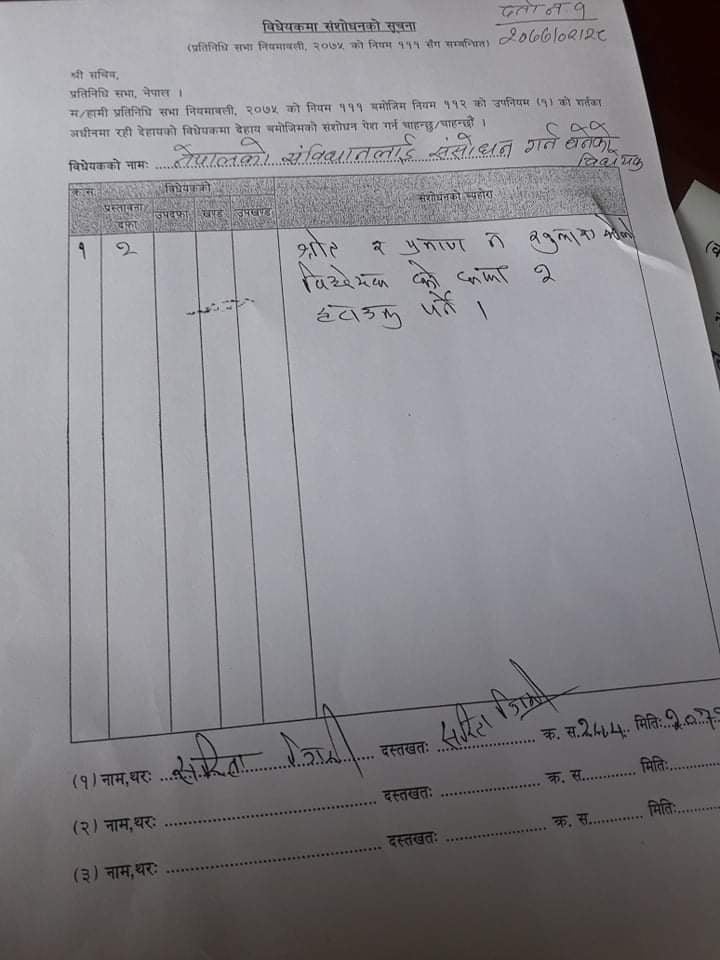 दर्ता नं १
२०७७/०२/२८
विधेयकमा संशोधनको सूचना
(प्रतिनिधि सभा नियमावली, २०७५ को नियम १११ सँग सम्बन्धित)
श्री सचिव,
प्रतिनिधि सभा, नेपाल ।
म/हामी प्रतिनिधि सभा नियमावली, २०७५ को नियम १११ बमोजिम नियम ११२ को उपनियम (१) को शर्तका
अधीनमा रही देहायको विधेयकमा देहाय बमोजिमको संशोधन पेश गर्न चाहन्छु/चाहन्छौं ।
विधेयकको नामः नेपालको संविधानलाई संसोधन गर्न बनेको
विधेयक
क्र.स. विधेयकको संशोधनको व्यहोरा
प्रस्तावना/दफा उपदफा खण्ड उपखण्ड
१ २ श्रोत र प्रमाण न
विधेयक को दफा २
हटाउनु पर्ने ।
(१) नाम,थरः सरिता दस्तखतः सरिता क्र. स. २४४ मितिः २०७
(२) नाम,थरः दस्तखतः क्र. स. मितिः
(३) नाम,थरः दस्तखतः क्र. स. मितिः